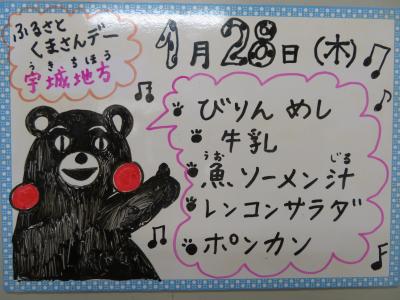 ふるさと
くまさんデー
うき ちほう
宇城地方
1月28日(木)
びりん めし
牛乳
うお じる
魚ソーメン汁
レンコンサラダ
ポンカン